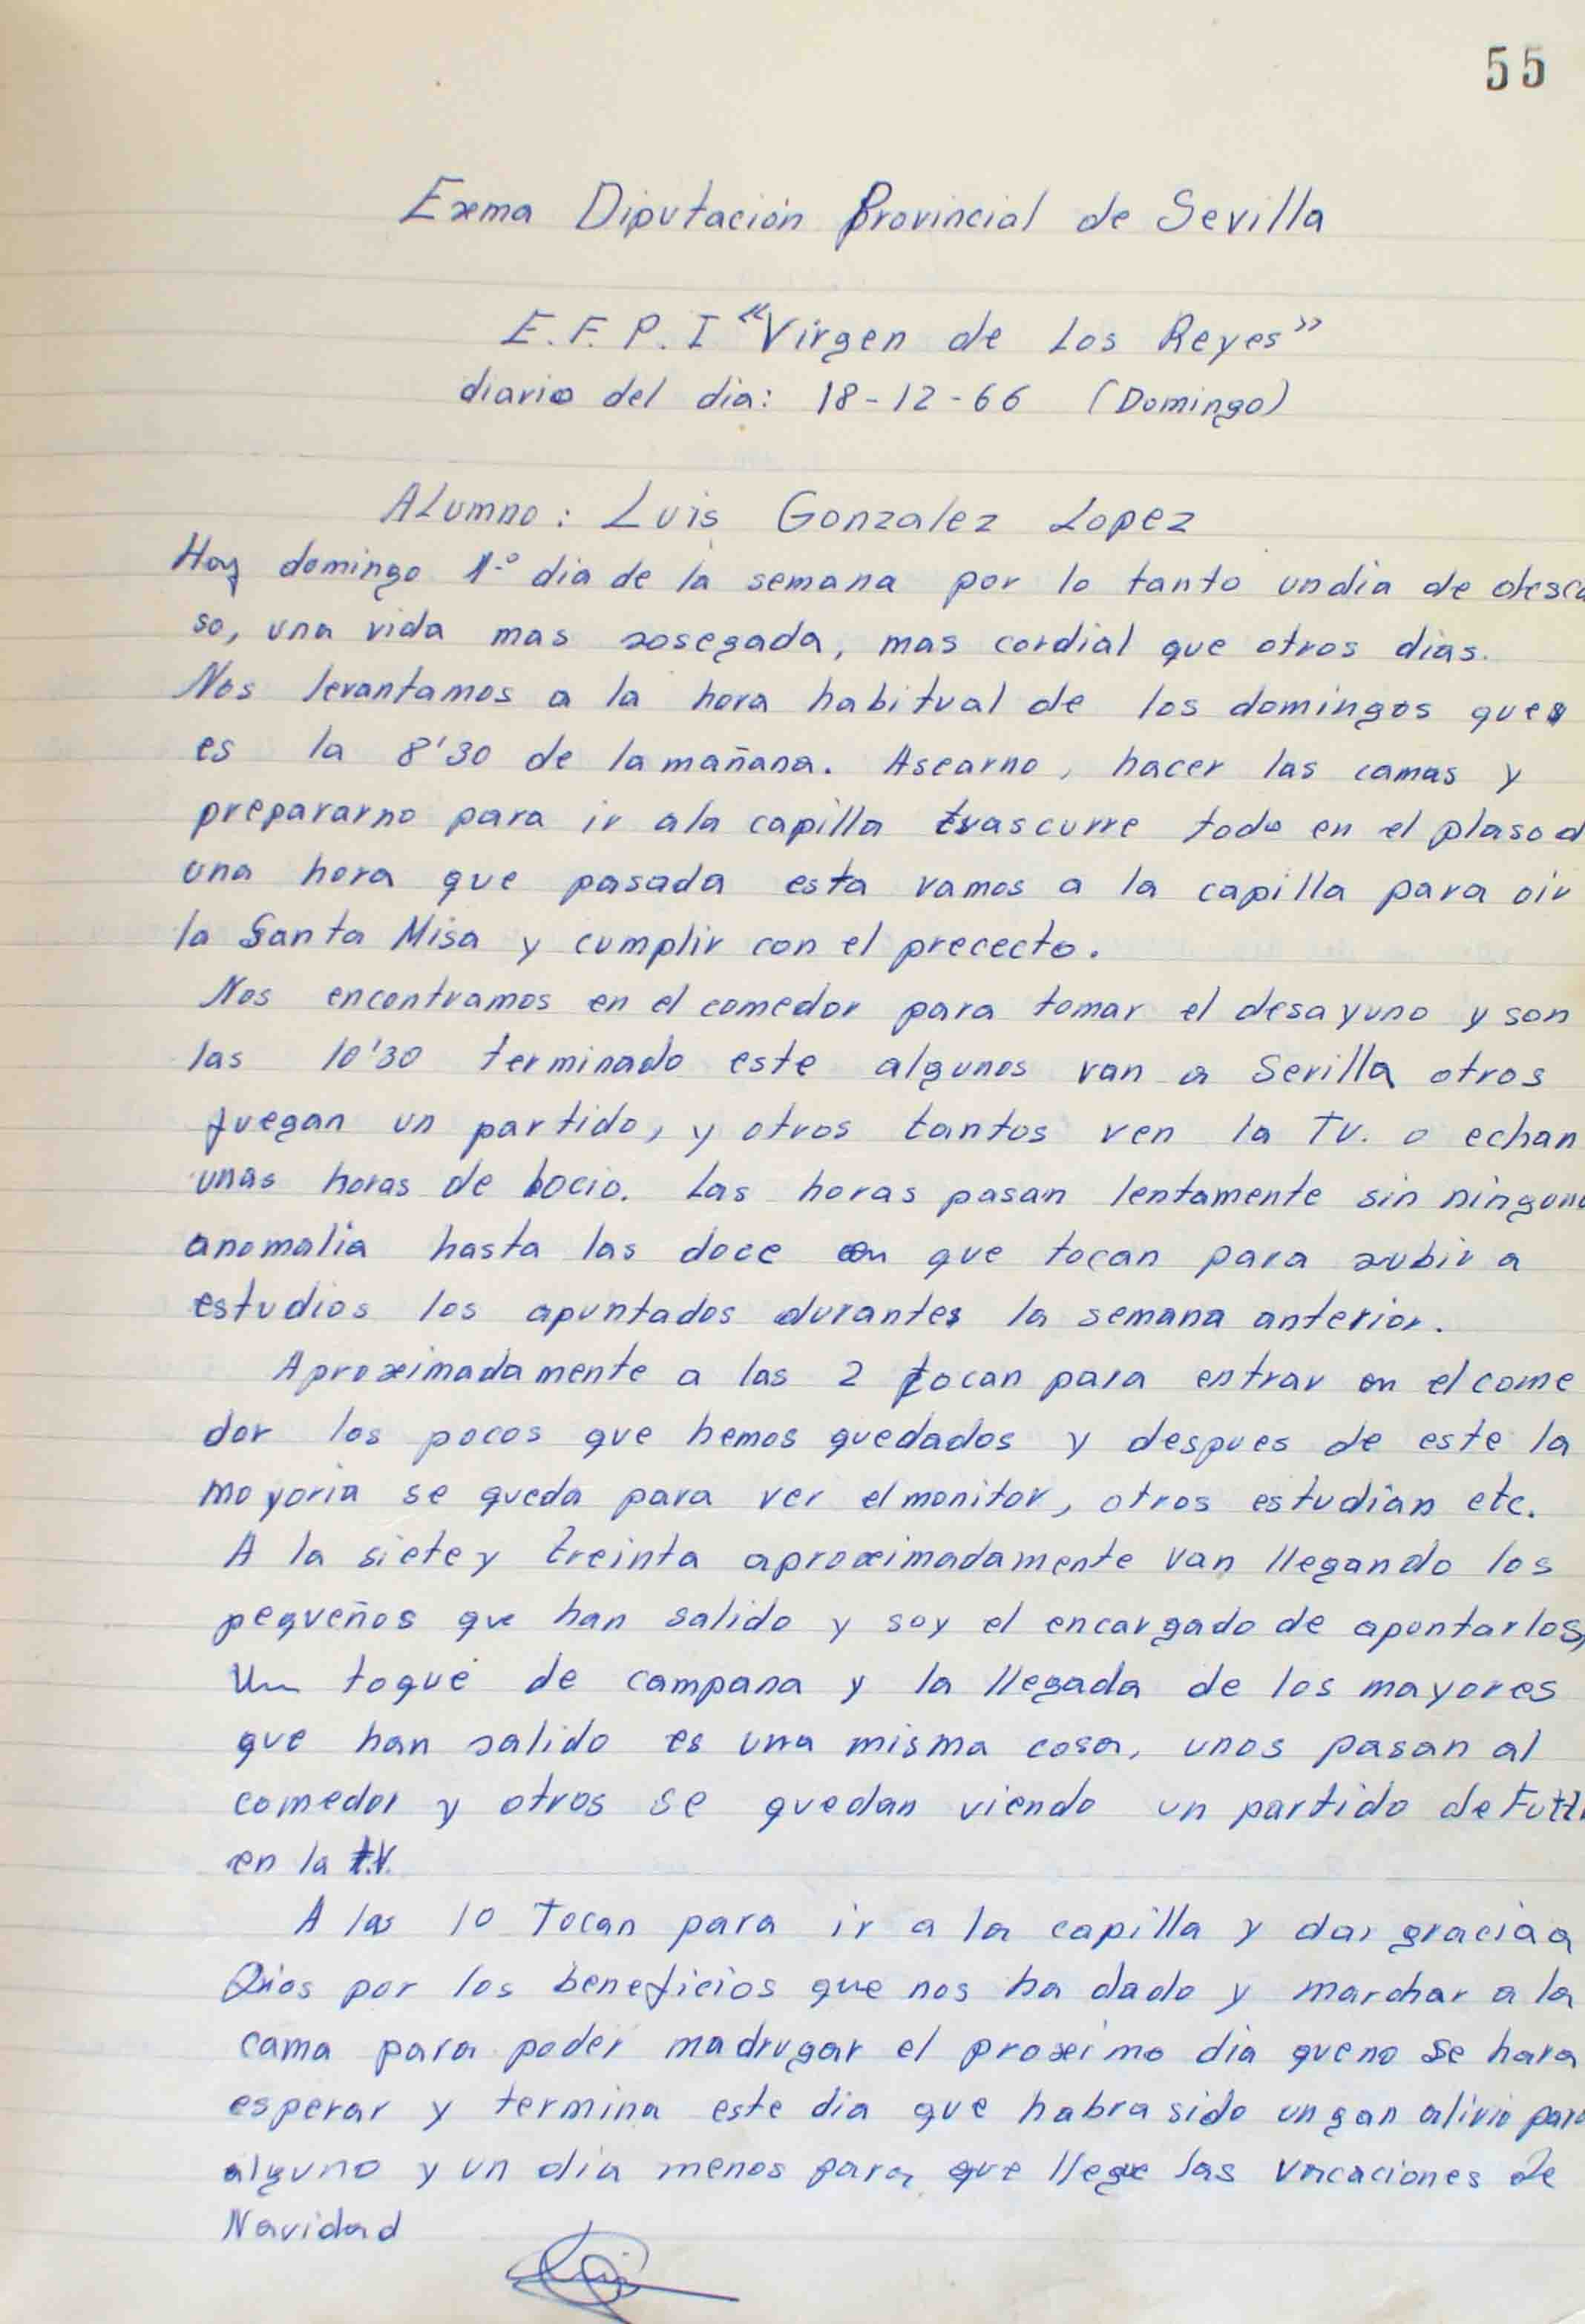 55
Exma Diputación Provincial de Sevilla
E.F.P.I "Virgen de Los Reyes"
diario del dia: 18-12-66 (Domingo)
ALumno: Luis Gonzalez Lopez
Hoy domingo 1.º dia de la semana por lo tanto undia de desca
so, una vida mas sosegada, mas cordial que otros dias.
Nos levantamos a la hora habitual de los domingos que
es la 8'30 de la mañana. Asearno, hacer las camas y
prepararno para ir ala capilla trascurre todo en el plaso d
una hora que pasada esta vamos a la capilla para oir
la Santa Misa y cumplir con el prececto.
Nos encontramos en el comedor para tomar el desayuno y son
las 10'30 terminado este algunos van a Sevilla otros
juegan un partido, y otros tantos ven la TV. o echan
unas horas de ocio. Las horas pasan lentamente sin ninguna
anomalia hasta las doce en que tocan para subir a
estudios los apuntados durantes la semana anterior.
Aproximadamente a las 2 tocan para entrar en el come
dor los pocos que hemos quedados y despues de este la
mayoria se queda para ver el monitor, otros estudian etc.
A la siete y treinta aproximadamente van llegando los
pequeños que han salido y soy el encargado de apontarlos,
Un toque de campana y la llegada de los mayores
que han salido es una misma cosa, unos pasan al
comedor y otros se quedan viendo un partido de Futb
en la t.V.
A las 10 Tocan para ir a la capilla y dar gracia a
Dios por los beneficios que nos ha dado y marchar a la
cama para poder madrugar el proximo dia que no se hara
esperar y termina este dia que habra sido un gan alivio para
alguno y un dia menos para que llegue las vacaciones de
Navidad